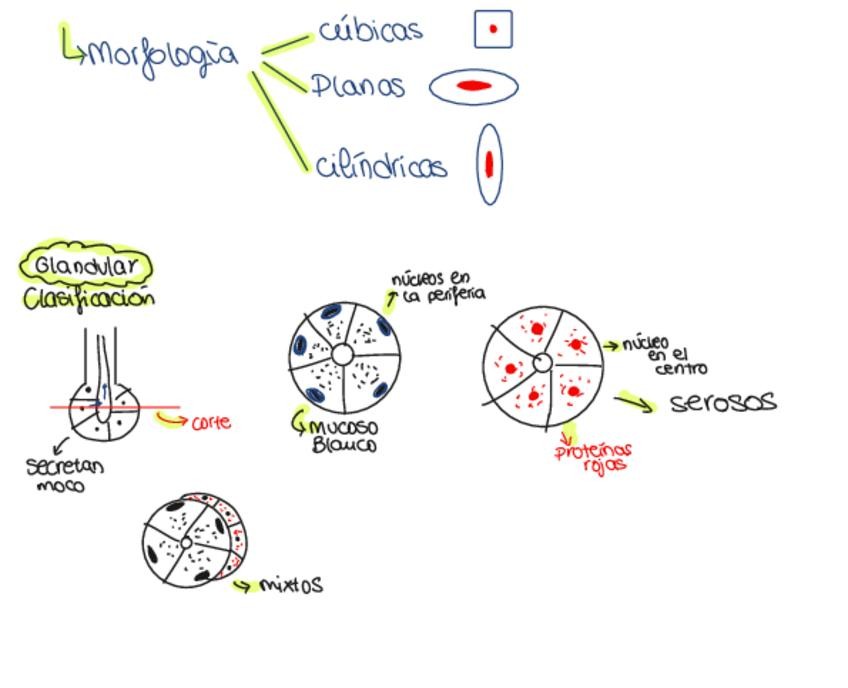 Morfología
cúbicas
Planas
cilíndricas
Glandular
Clasificación
núcleos en
la periferia
núcleo
en el
centro
serosos
corte
Mucoso
Blanco
proteínas
rojas
secretan
moco
mixtos